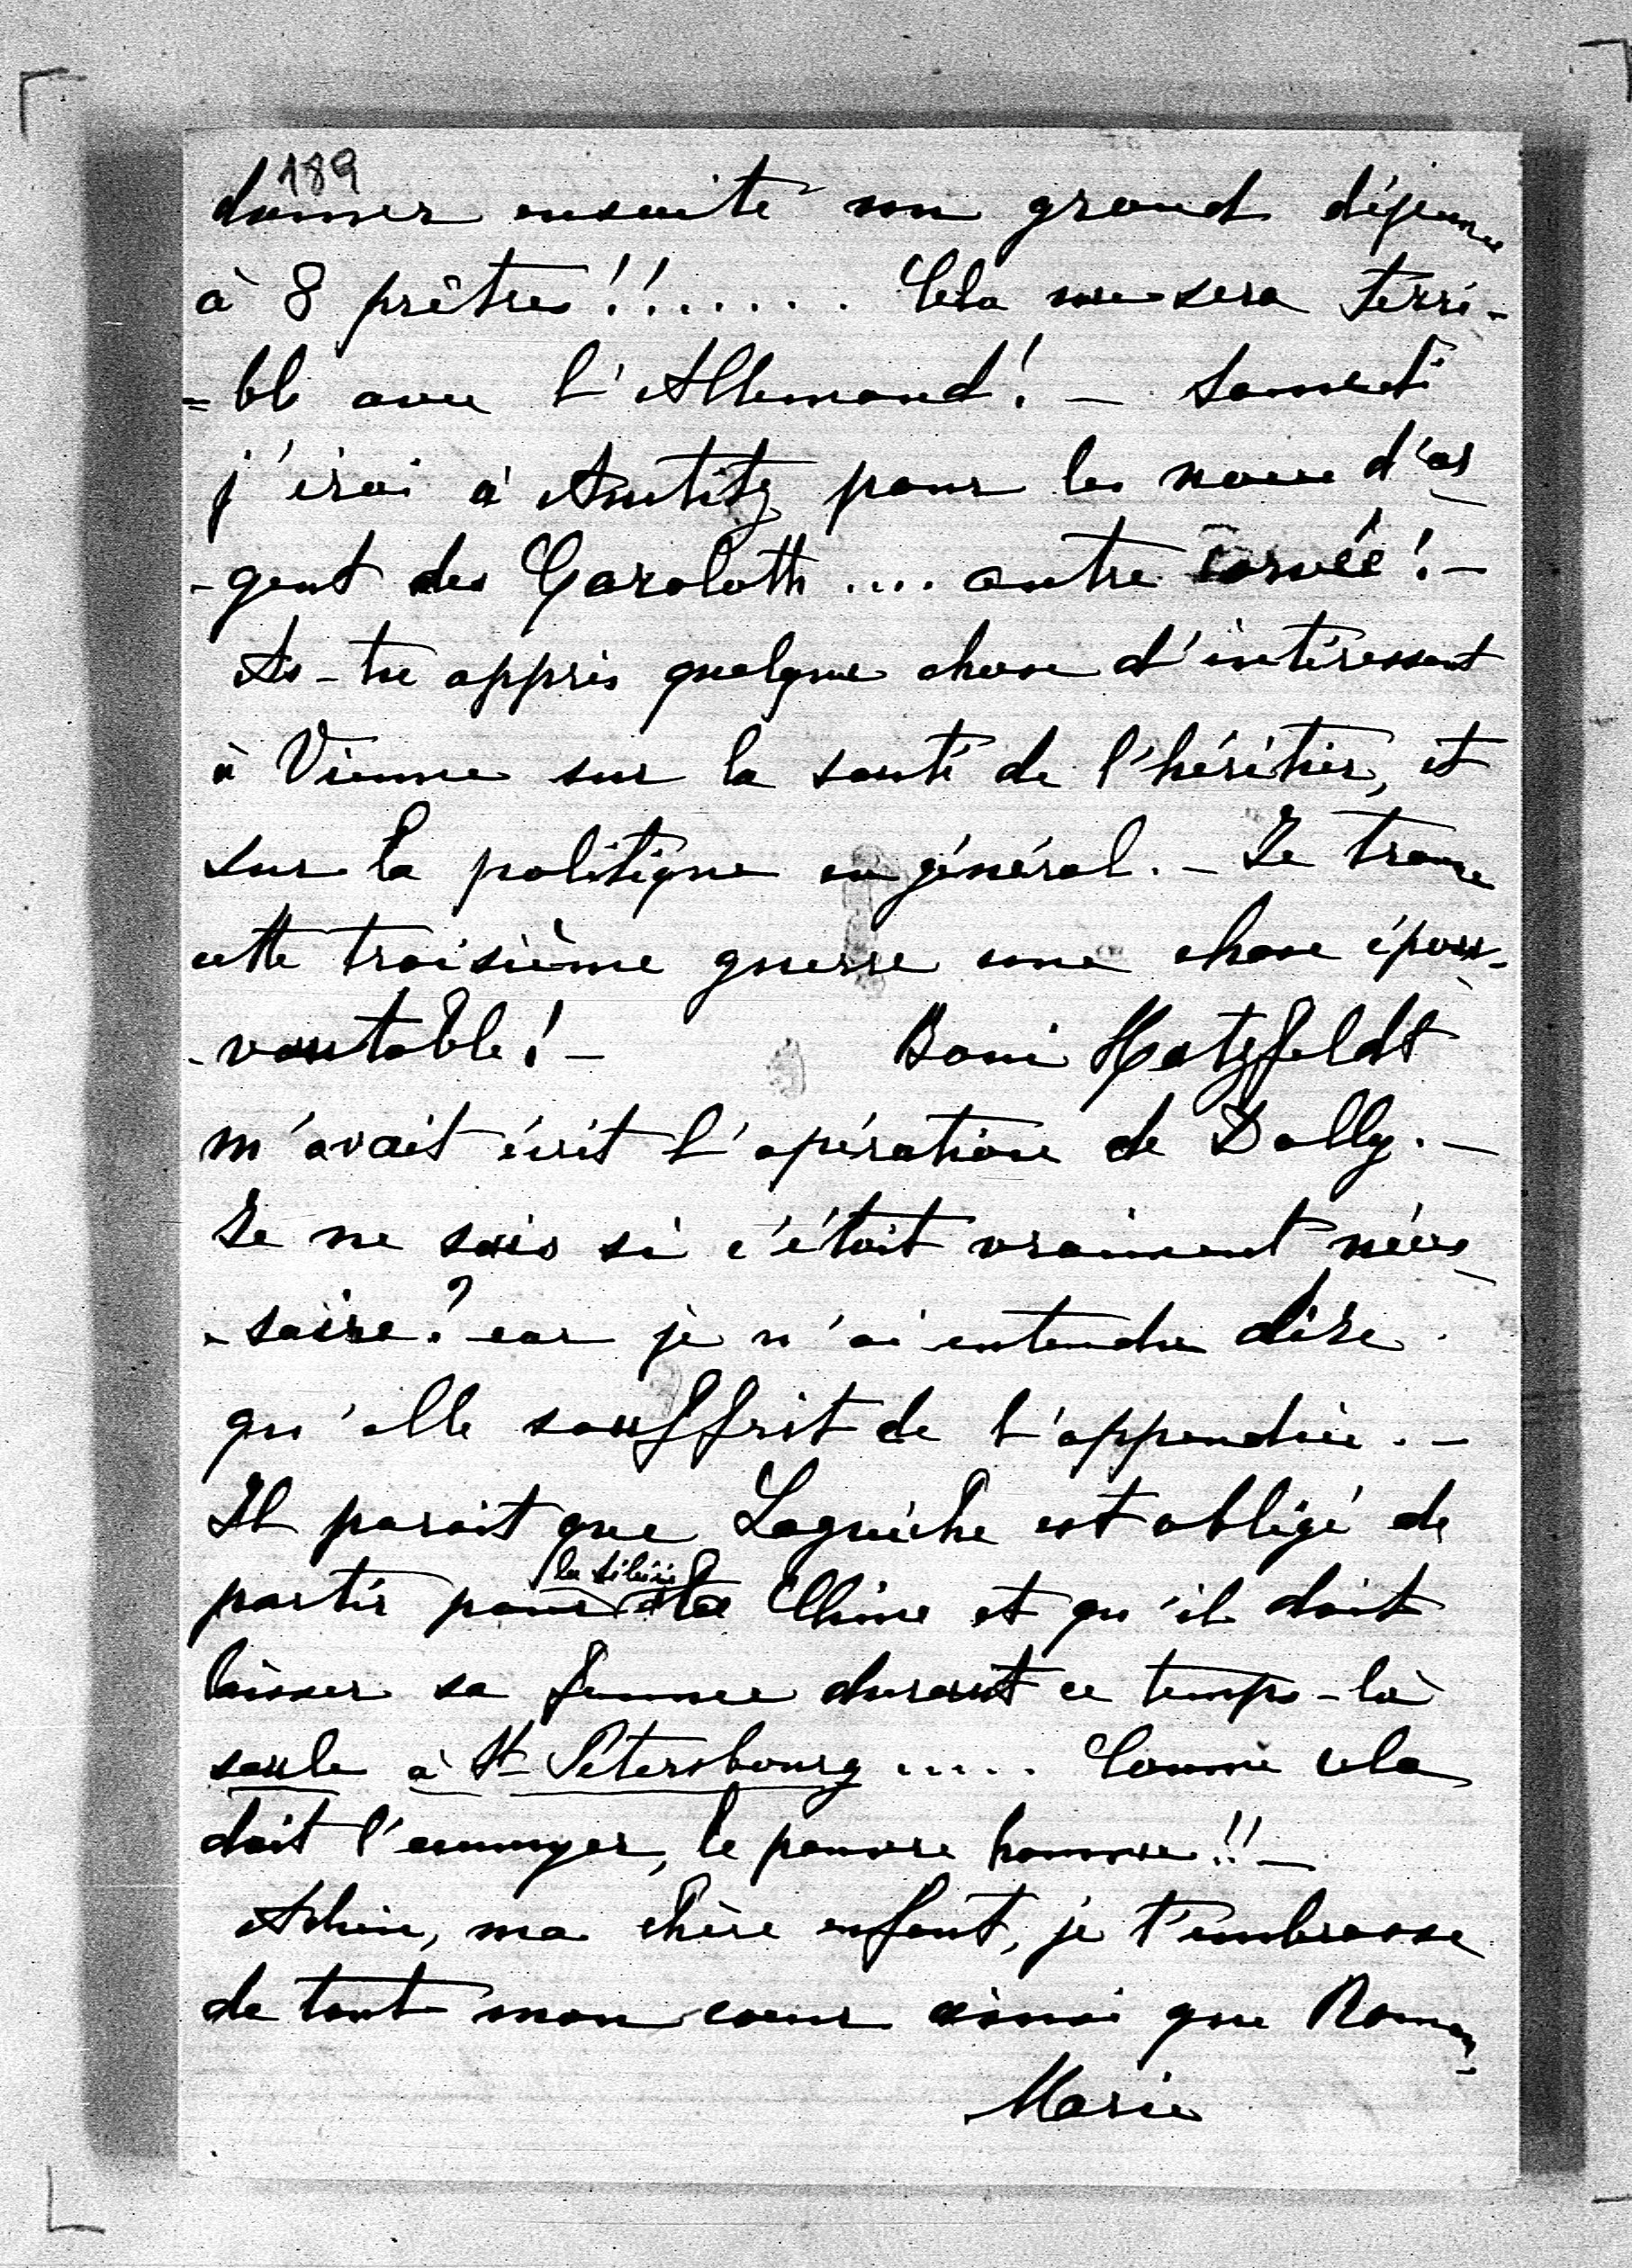 189
donner ensuite un grand déjeuner
à 8 prêtres!!...... Cela me sera terri-
=ble avec l'Allemand! – Samedi
j'irai à pour les noces d'ar
-gent des .... autre corvée! –
As-tu appris quelque chose d'intéressant
à Vienne sur la santé de l'héritier, et
sur la politique en général. – Je trouve
cette troisième guerre une chose épou-
-vantable! – Boni Hatzfeldt
m'avait écrit l'opération de Dolly. –
Je ne sais si c'était vraiment néces
-saire? car je n'ai entendu dire
qu'elle souffrit de l'appendice. –
Il parait que Laguiche est obligé de
partir pour la Sibérie et la Chine et qu'il doit
laisser sa femme durant ce temps-là
seule à St-Petersbourg ..... Comme cela
doit l'ennuyer, le pauvre homme!! –
Adieu, ma chère enfant, je t'embrasse
de tout mon coeur ainsi que Roman,
Marie